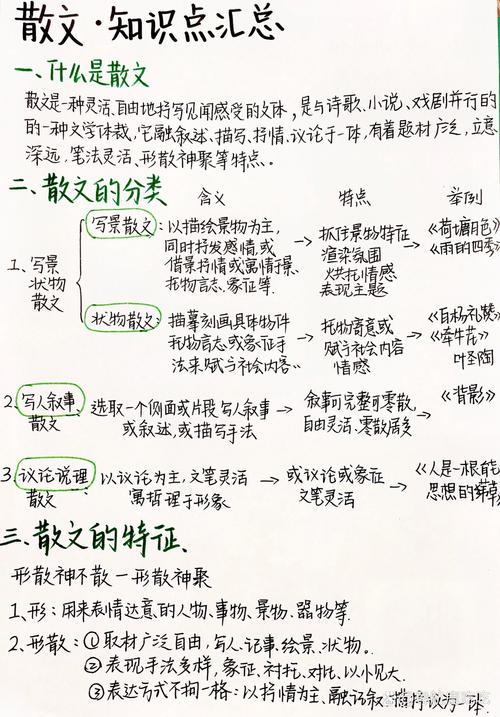 散文·知识点汇总
一、什么是散文
散文是一种灵活、自由地抒写见闻感受的文体,是与诗歌、小说、戏剧并行的
的一种文学体裁,它融叙述、描写、抒情、议论于一体,有着题材广泛,立意
深远,笔法灵活、形散神聚等特点、。
二、散文的分类 含义 特点 举例
1、写景状物散文
写景散文:以描绘景物为主,同时抒发感情,或借景抒情或寓情于景、托物言志、象征等. → 抓住景物特征 渲染氛围 烘托情感 表现主题 → 《荷塘月色》《雨的四季
状物散文:描摹刻画具体物件 托物言志或象征手法来赋与社会内容. → 托物寄意或赋与社会内容 情感 → 《白杨礼赞》《牵牛花》叶圣陶
2、写人叙事散文 选取一个侧面或片段写人叙事或叙述,或描写手法 → 叙事可完整可零散,自由灵活、零散居多 → 《背影》
3、议论说理散文 以议论为主,文笔灵活 寓哲理于形象 → 或议论或象征 文笔灵活 → 《人是一根能思想的苇草
三、散文的特征、
形散神不散一形散神聚
1、形:用来表情达意的人物、事物、景物、器物等.
2、形散:①取材广泛自由,写人、记事、绘景、状物。
②表现手法多样,象征、衬托、对比、以小见大.
③表达方式不拘一格:以抒情为主,融记叙、描